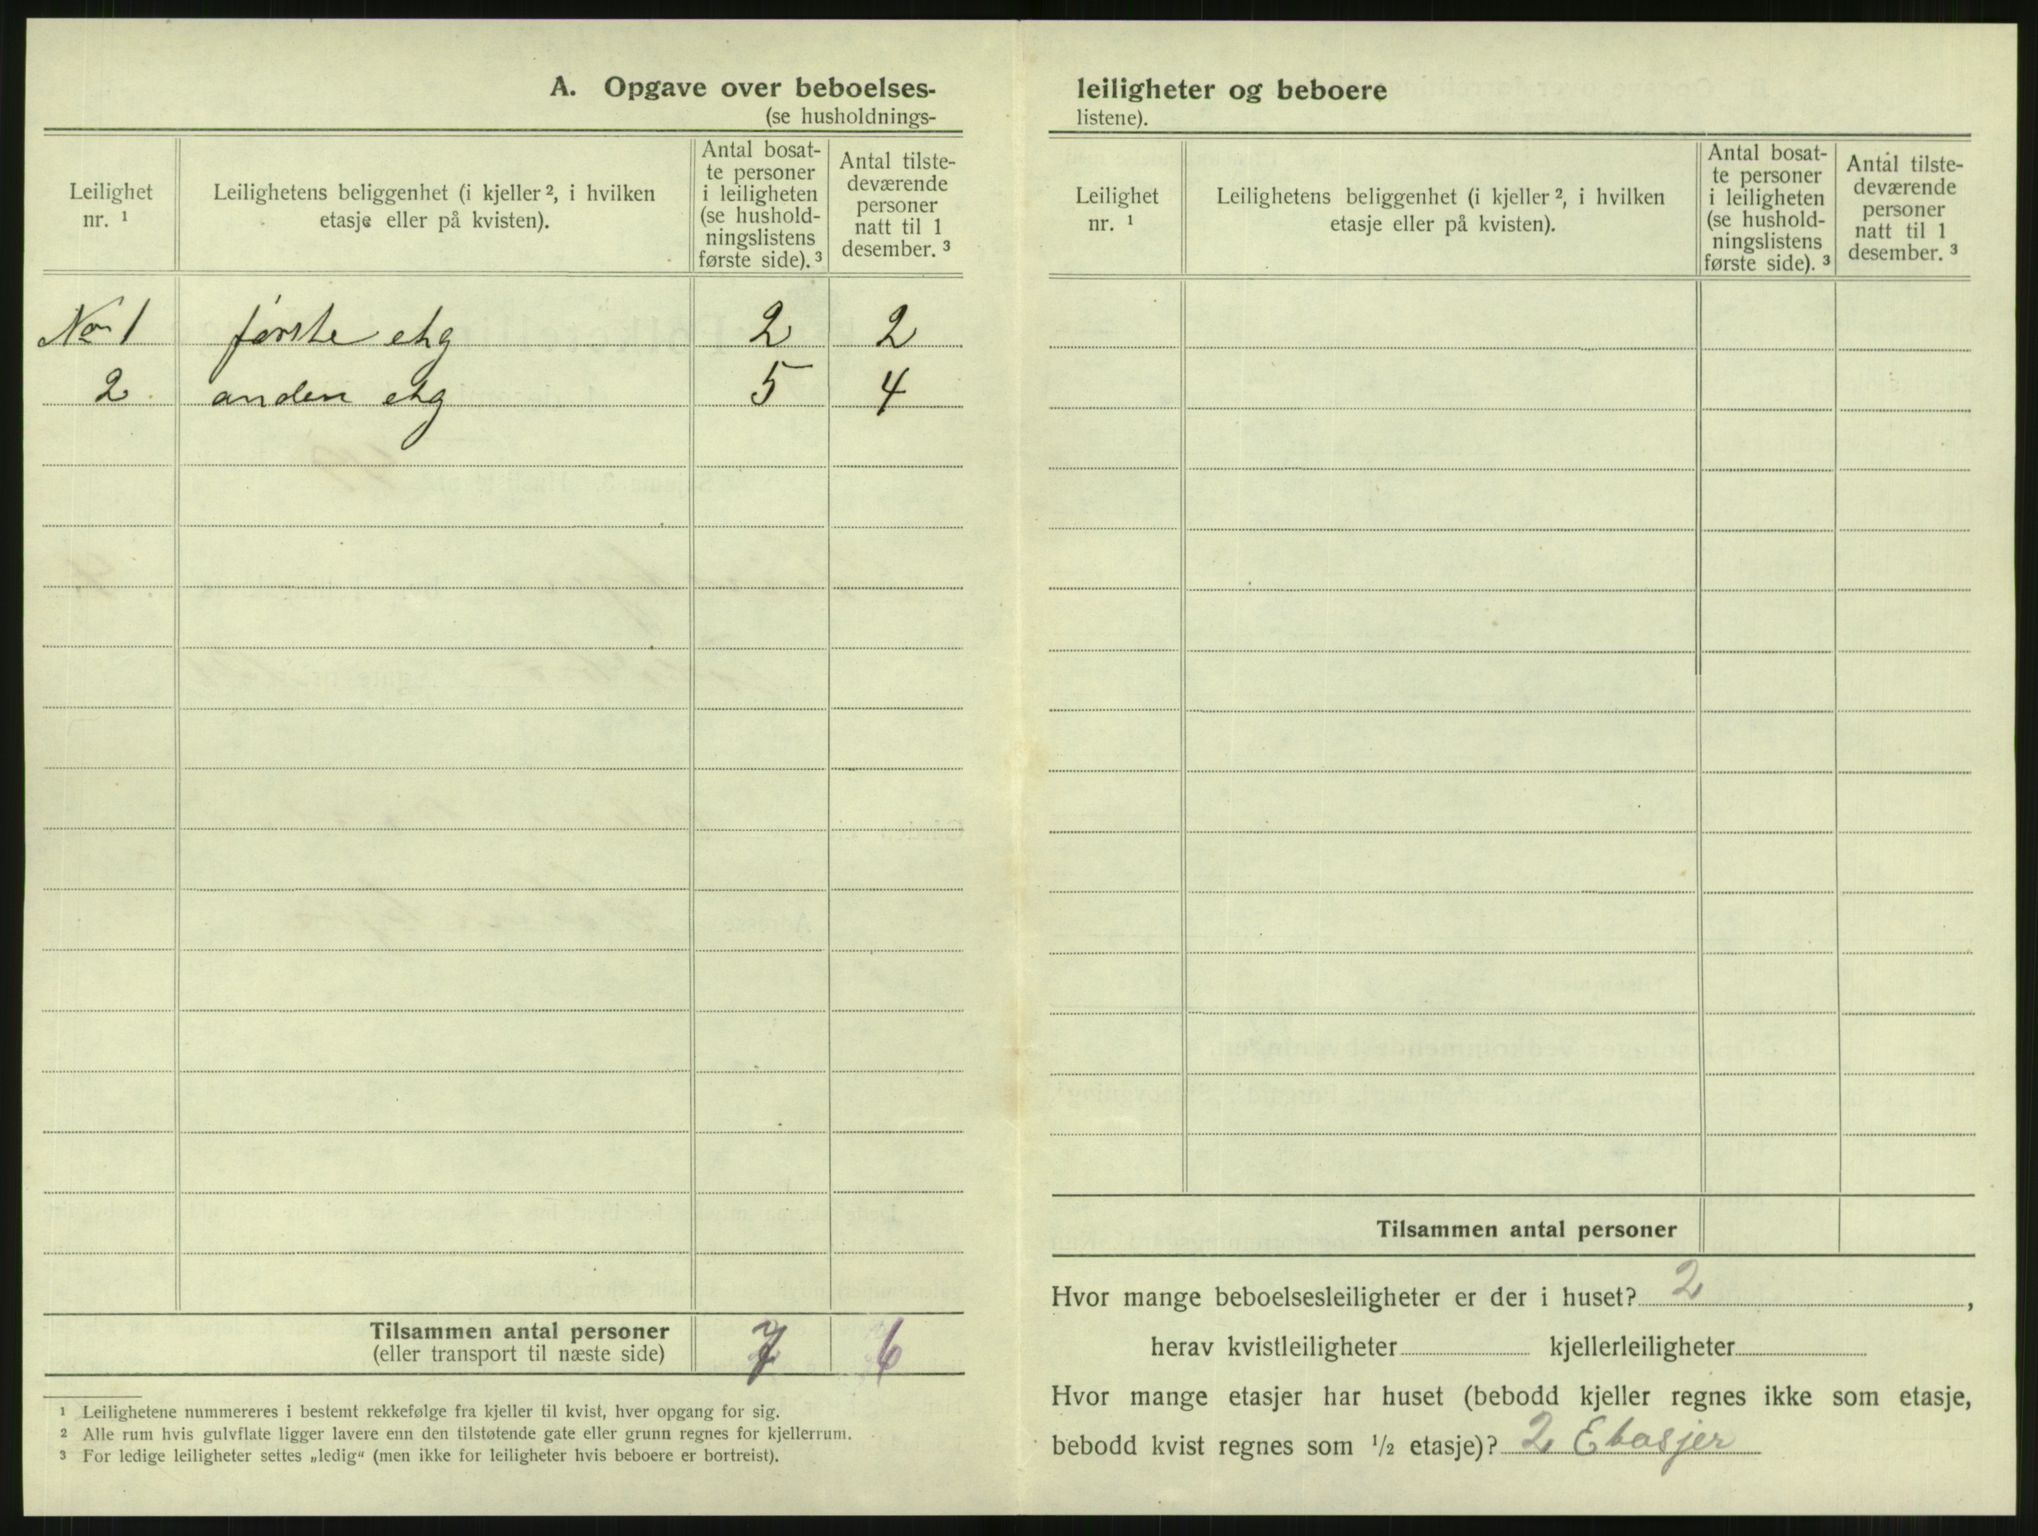 A. Opgave over beboelses-
(se husholdnings-
Leilighet
nr. ¹
Leilighetens beliggenhet (i kjeller ², i hvilken
etasje eller på kvisten).
Antal bosat-
te personer
i leiligheten
(se hushold-
ningslistens
første side). ³
Antal tilste-
deværende
personer
natt til 1
desember. ³
No 1 første etg 2 2
2 anden etg 5 4
Tilsammen antal personer 7 6
(eller transport til næste side)
¹ Leilighetene nummereres i bestemt rekkefølge fra kjeller til kvist, hver opgang for sig.
² Alle rum hvis gulvflate ligger lavere enn den tilstøtende gate eller grunn regnes for kjellerrum.
³ For ledige leiligheter settes „ledig“ (men ikke for leiligheter hvis beboere er bortreist).
leiligheter og beboere
listene).
Leilighet
nr. ¹
Leilighetens beliggenhet (i kjeller ², i hvilken
etasje eller på kvisten).
Antal bosat-
te personer
i leiligheten
(se hushold-
ningslistens
første side). ³
Antal tilste-
deværende
personer
natt til 1
desember. ³
Tilsammen antal personer
Hvor mange beboelsesleiligheter er der i huset? 2 ,
herav kvistleiligheter kjellerleiligheter
Hvor mange etasjer har huset (bebodd kjeller regnes ikke som etasje,
bebodd kvist regnes som ½ etasje)? 2 Etasjer